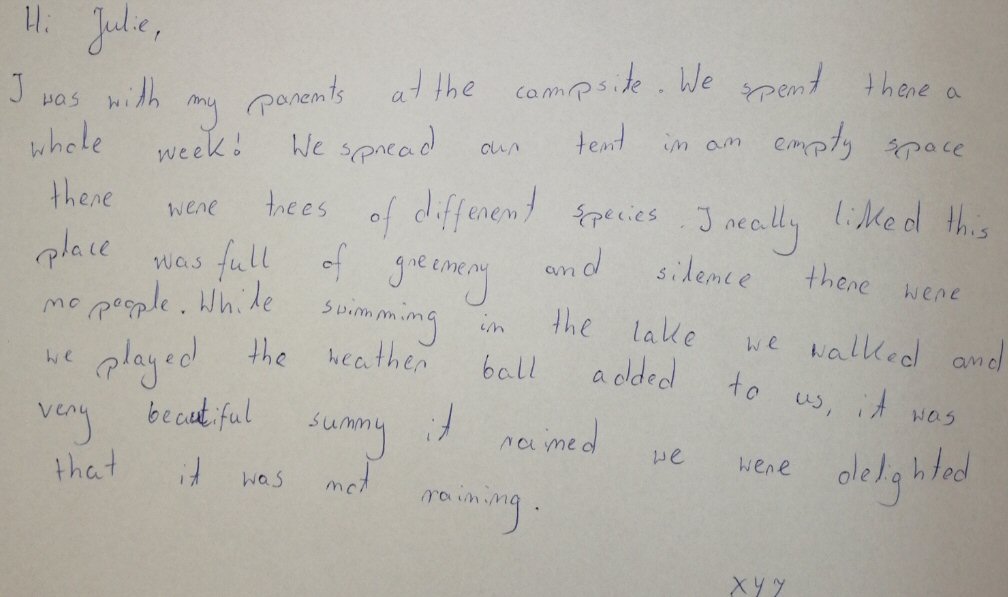 Hi Julie,
I was with my parents at the campsite. We spent there a
whole week! We spread our tent in an empty space
there were trees of different species. I really liked this
place was full of greenery and silence there were
no people. While swimming in the lake we walked and
we played the weather ball added to us, it was
very beautiful sunny it rained we were delighted
that it was not raining.
XYY